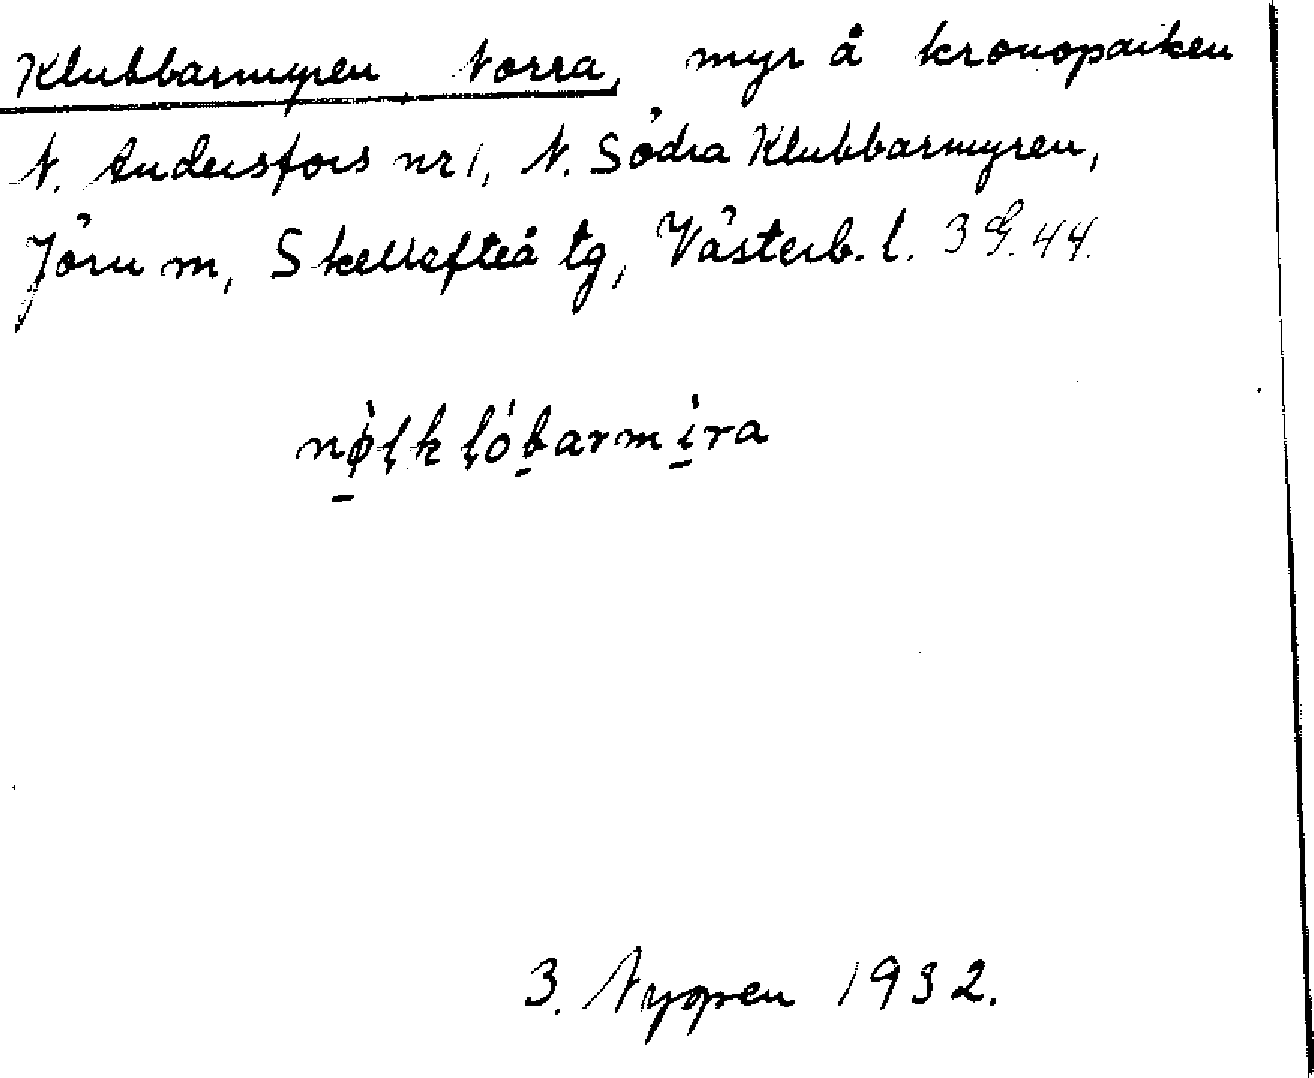 Klubbarmyren Norra, myr å kronoparken
N. Andersfors nr 1, N. Södra Klubbarmyren,
Jörn m, Skellefteå tg, Västerb. l. 3 G. 44.
nø̀lklóbarmìra
3. Nygren 1932.